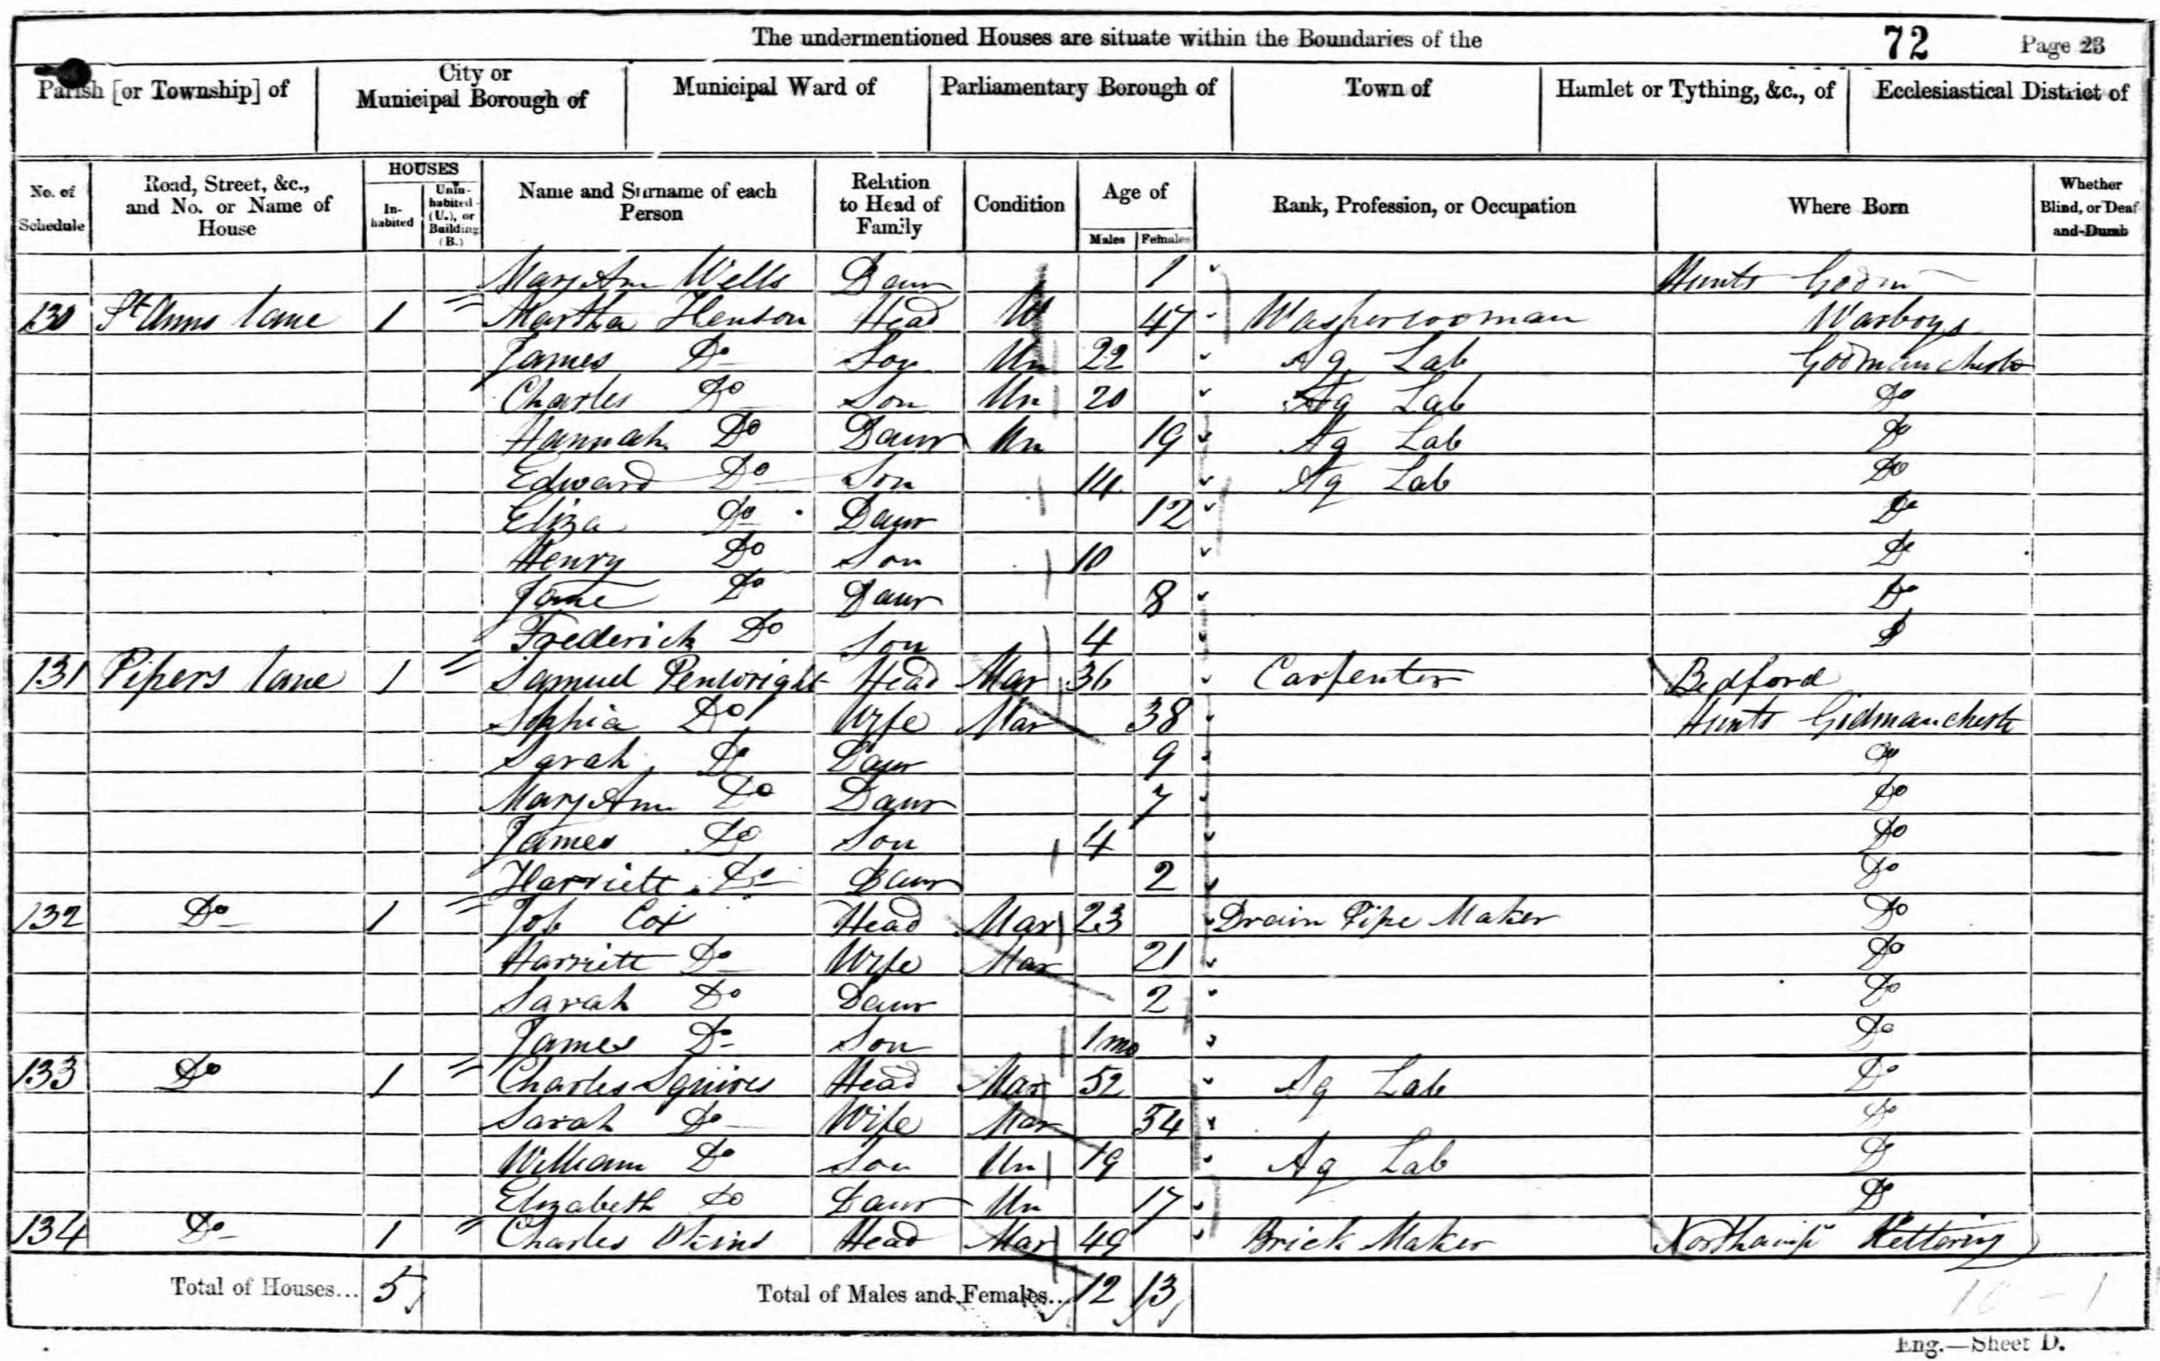 The undermentioned Houses are situate within the Boundaries of the 72 Page 23
Parish [or Township] of City or Municipal Borough of Municipal Ward of Parliamentary Borough of Town of Hamlet or Tything, &c., of Ecclesiastical District of
No. of Schedule Road, Street, &c., and No. or Name of House HOUSES Inhabited Uninhabited (U.), or Building (B.) Name and Surname of each Person Relation to Head of Family Condition Age of Males Females Rank, Profession, or Occupation Where Born Whether Blind, or Deaf-and-Dumb
Mary Ann Wells Daur 1 Hunts Godm
130 St Anns lane 1 Martha Henson Head W 47 Washerwoman Warboys
James Do Son Un 22 Ag Lab Godmanchester
Charles Do Son Un 20 Ag Lab Do
Hannah Do Daur Un 19 Ag Lab Do
Edward Do Son 14 Ag Lab Do
Eliza Do Daur 12 Do
Henry Do Son 10 Do
Jane Do Daur 8 Do
Frederick Do Son 4 D
131 Pipers lane 1 Samuel Penwright Head Mar 36 Carpenter Bedford
Sophia Do Wife Mar 38 Hunts Godmanchester
Sarah Do Daur 9 Do
Mary Ann Do Daur 7 Do
James Do Son 4 Do
Harriett Do Daur 2 Do
132 Do 1 Job Cox Head Mar 23 Drain Pipe Maker Do
Harriett Do Wife Mar 21 Do
Sarah Do Daur 2 Do
James Do Son 1 mo Do
133 Do 1 Charles Squires Head Mar 52 Ag Lab Do
Sarah Do Wife Mar 54 Do
William Do Son Un 19 Ag Lab D
Elizabeth Do Daur Un 17 D
134 Do 1 Charles Okins Head Mar 49 Brick Maker Kettering
Total of Houses... 5 Total of Males and Females... 12 13
Eng.—Sheet D.